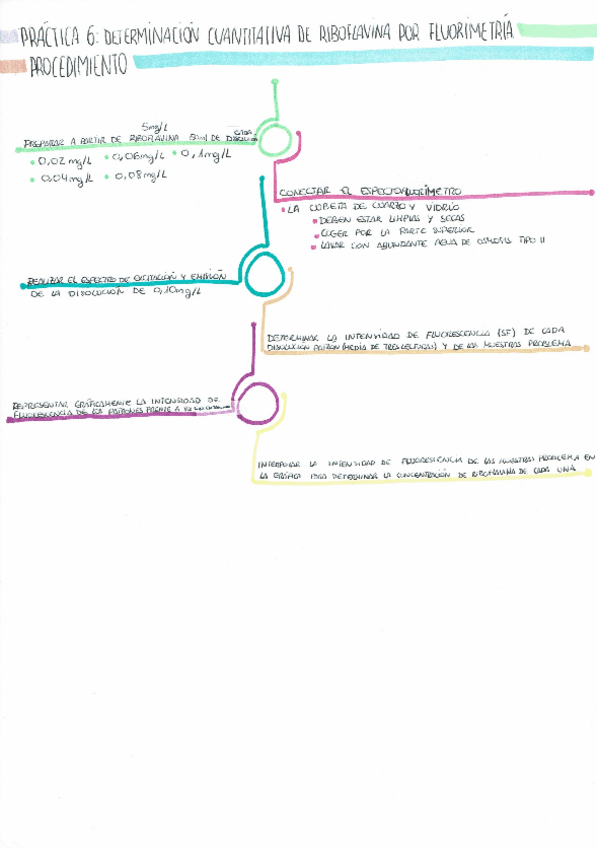 PRÁCTICA 6: DETERMINACIÓN CUANTITATIVA DE RIBOFLAVINA POR FLUORIMETRÍA
PROCEDIMIENTO
5mg/L
CADA
PREPARAR A PARTIR DE RIBOFLAVINA 50ml DE DISOLUCIÓN
• 0,02 mg/L • 0,06 mg/L • 0,1 mg/L
• 0,04 mg/L • 0,08 mg/L
CONECTAR EL ESPECTOFLUORÍMETRO
• LA CUBETA DE CUARZO Y VIDRIO
• DEBEN ESTAR LIMPIAS Y SECAS
• COGER POR LA PARTE SUPERIOR
• LAVAR CON ABUNDANTE AGUA DE OSMOSIS TIPO II
REALIZAR EL ESPECTRO DE EXCITACIÓN Y EMISIÓN
DE LA DISOLUCIÓN DE 0,10mg/L
DETERMINAR LA INTENSIDAD DE FLUORESCENCIA (SF) DE CADA
DISOLUCIÓN PATRÓN (MEDIA DE TRES LECTURAS) Y DE LAS MUESTRAS PROBLEMA
REPRESENTAR GRÁFICAMENTE LA INTENSIDAD DE
FLUORESCENCIA DE LOS PATRONES FRENTE A
INTERPOLAR LA INTENSIDAD DE FLUORESCENCIA DE LAS MUESTRAS PROBLEMA EN
LA GRÁFICA PARA DETERMINAR LA CONCENTRACIÓN DE RIBOFLAVINA DE CADA UNA